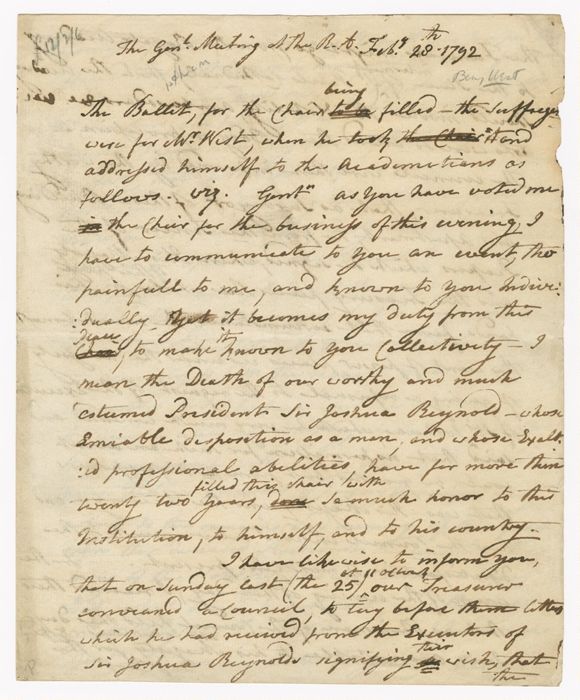 The Genl. Meeting at the R. A. Feby. 28th 1792
Benj West
being
The Ballet, for the Chair to be filled – the Suffrages
were for Mr. West, when he took the Chair and
addressed himself to the Academicians as
follows.. viz. Gentn. as you have voted me
in the Chair for the business of this evening, I
have to communicate to you an event, tho
painfull to me, and known to you Indivi:
:dually, yet it becomes my duty from this
Chair, to make it known to you Collectively – I
mean the Death of our worthy and much
esteemed President Sir Joshua Reynold – whose
Emiable disposition as a man, and whose Exalt:
:ed professional abilities, have for more then
filled this Chair with
twenty two years, done so much honor to this
Institution, to himself, and to his country. –
I have likewise to inform you,
at 11 oclock
that on Sunday last (the 25) our Treasurer
conveaned a Council, to lay before them letters
which he had received from the Executors of
their
Sir Joshua Reynolds signifying wish, that
the